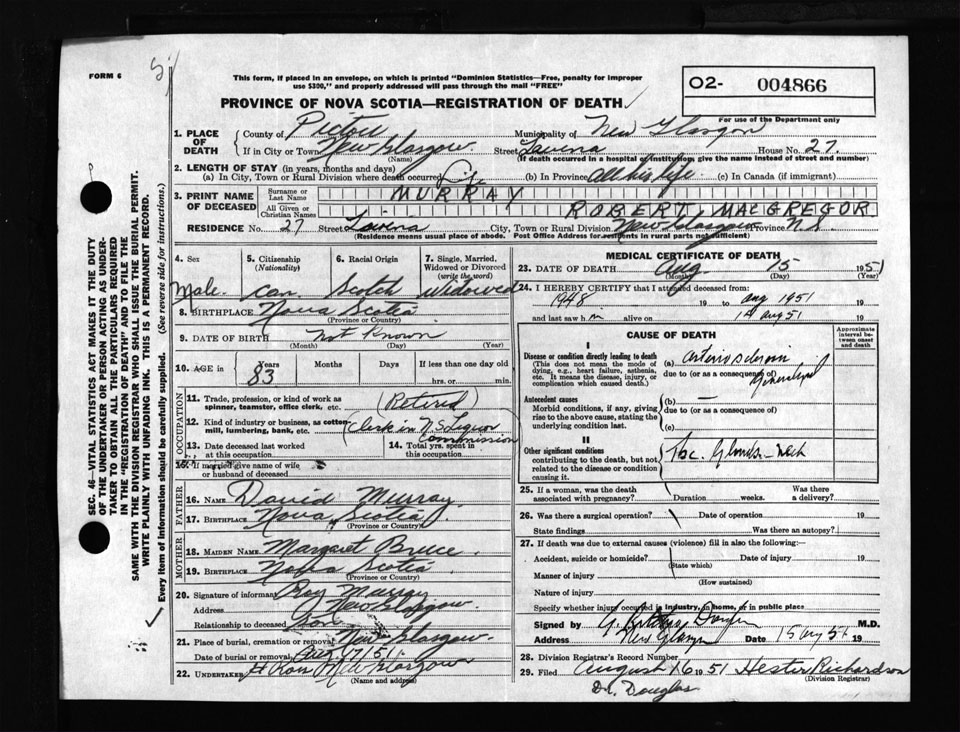 FORM 6
This form, if placed in an envelope, on which is printed "Dominion Statistics—Free, penalty for improper
use $300," and properly addressed will pass through the mail "FREE"
PROVINCE OF NOVA SCOTIA—REGISTRATION OF DEATH
02- 004866
For use of the Department only
1. PLACE OF DEATH
County of Pictou Municipality of New Glasgow
If in City or Town New Glasgow Street Lavinia House No. 27
(Name) (If death occurred in a hospital or institution, give the name instead of street and number)
2. LENGTH OF STAY (in years, months and days)
(a) In City, Town or Rural Division where death occurred Life (b) In Province all his life (c) In Canada (if immigrant)
3. PRINT NAME OF DECEASED
Surname or Last Name MURRAY
All Given or Christian Names ROBERT MACGREGOR
RESIDENCE No. 27 Street Lavinia City, Town or Rural Division New Glasgow Province N.S.
(Residence means usual place of abode. Post Office Address for residents in rural parts not sufficient)
4. Sex
Male
5. Citizenship (Nationality)
Can
6. Racial Origin
Scotch
7. Single, Married, Widowed or Divorced (write the word)
Widowed
8. BIRTHPLACE Nova Scotia
(Province or Country)
9. DATE OF BIRTH Not Known
(Month) (Day) (Year)
10. AGE in Years Months Days If less than one day old
83 hrs. or min.
OCCUPATION
11. Trade, profession, or kind of work as spinner, teamster, office clerk, etc. (Retired)
12. Kind of industry or business, as cotton-mill, lumbering, bank, etc. (Clerk in N S Liquor Commission)
13. Date deceased last worked at this occupation
14. Total yrs. spent in this occupation
15. If married give name of wife or husband of deceased
FATHER
16. NAME David Murray
17. BIRTHPLACE Nova Scotia
(Province or Country)
MOTHER
18. MAIDEN NAME Margaret Bruce
19. BIRTHPLACE Nova Scotia
(Province or Country)
20. Signature of informant Roy Murray
Address New Glasgow
Relationship to deceased Son
21. Place of burial, cremation or removal New Glasgow
Date of burial or removal Aug 17/51
22. UNDERTAKER Glasgow
(Name and address)
MEDICAL CERTIFICATE OF DEATH
23. DATE OF DEATH Aug 15 1951
(Month) (Day) (Year)
24. I HEREBY CERTIFY that I attended deceased from:
1948 19 to Aug 1951 19
and last saw h m alive on 19
CAUSE OF DEATH
Approximate interval between onset and death
I
Disease or condition directly leading to death
(This does not mean the mode of dying, e.g., heart failure, asthenia, etc. It means the disease, injury, or complication which caused death.)
(a) due to (or as a consequence of) Generalized
Antecedent causes
Morbid conditions, if any, giving rise to the above cause, stating the underlying condition last.
(b) —
due to (or as a consequence of)
(c)
II
Other significant conditions
contributing to the death, but not related to the disease or condition causing it.
Tbc. Glands - Neck
25. If a woman, was the death associated with pregnancy? Duration weeks. Was there a delivery?
26. Was there a surgical operation? Date of operation 19
State findings Was there an autopsy?
27. If death was due to external causes (violence) fill in also the following:—
Accident, suicide or homicide? Date of injury 19
(State which)
Manner of injury
(How sustained)
Nature of injury
Specify whether injury occurred in industry, in home, or in public place
Signed by M.D.
Address New Glasgow Date 15 Aug 51 19
28. Division Registrar's Record Number
29. Filed August 16 1951 Hester Richardson
(Division Registrar)
Dr. Douglas
SEC. 46—VITAL STATISTICS ACT MAKES IT THE DUTY
OF THE UNDERTAKER OR PERSON ACTING AS UNDER-
TAKER TO OBTAIN ALL THE PARTICULARS REQUIRED
IN THE "REGISTRATION OF DEATH" AND TO FILE THE
SAME WITH THE DIVISION REGISTRAR WHO SHALL ISSUE THE BURIAL PERMIT.
WRITE PLAINLY WITH UNFADING INK. THIS IS A PERMANENT RECORD.
Every item of information should be carefully supplied. (See reverse side for instructions.)